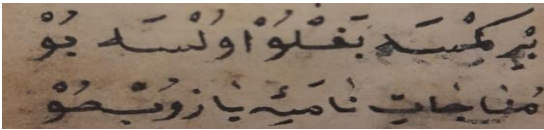 بِرْ كِمْسَه بَغْلُوْ اوُلْسَه بُوْ
مُنَاجَاتِ نَامَيِ يَازُوبْ صُوْ